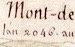 Mont-de
l'an 2046. au